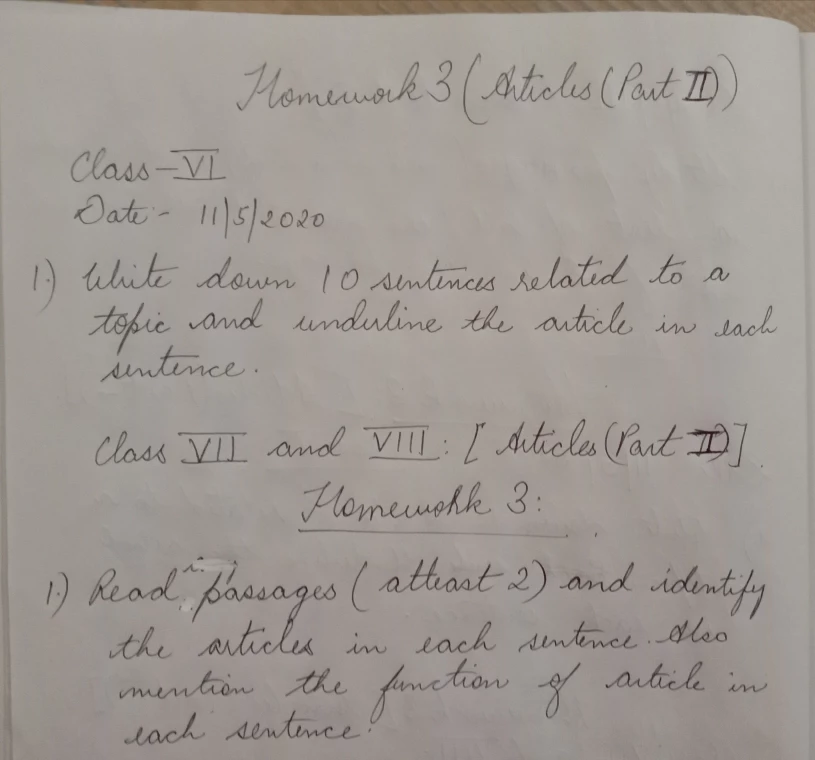 Homework 3 (Articles (Part II))
Class - VI
Date :- 11/5/2020
1.) Write down 10 sentences related to a
topic and underline the article in each
sentence.
Class VII and VIII : [ Articles (Part II)]
Homework 3:
1.) Read passages ( atleast 2) and identify
the articles in each sentence. Also
mention the function of article in
each sentence.